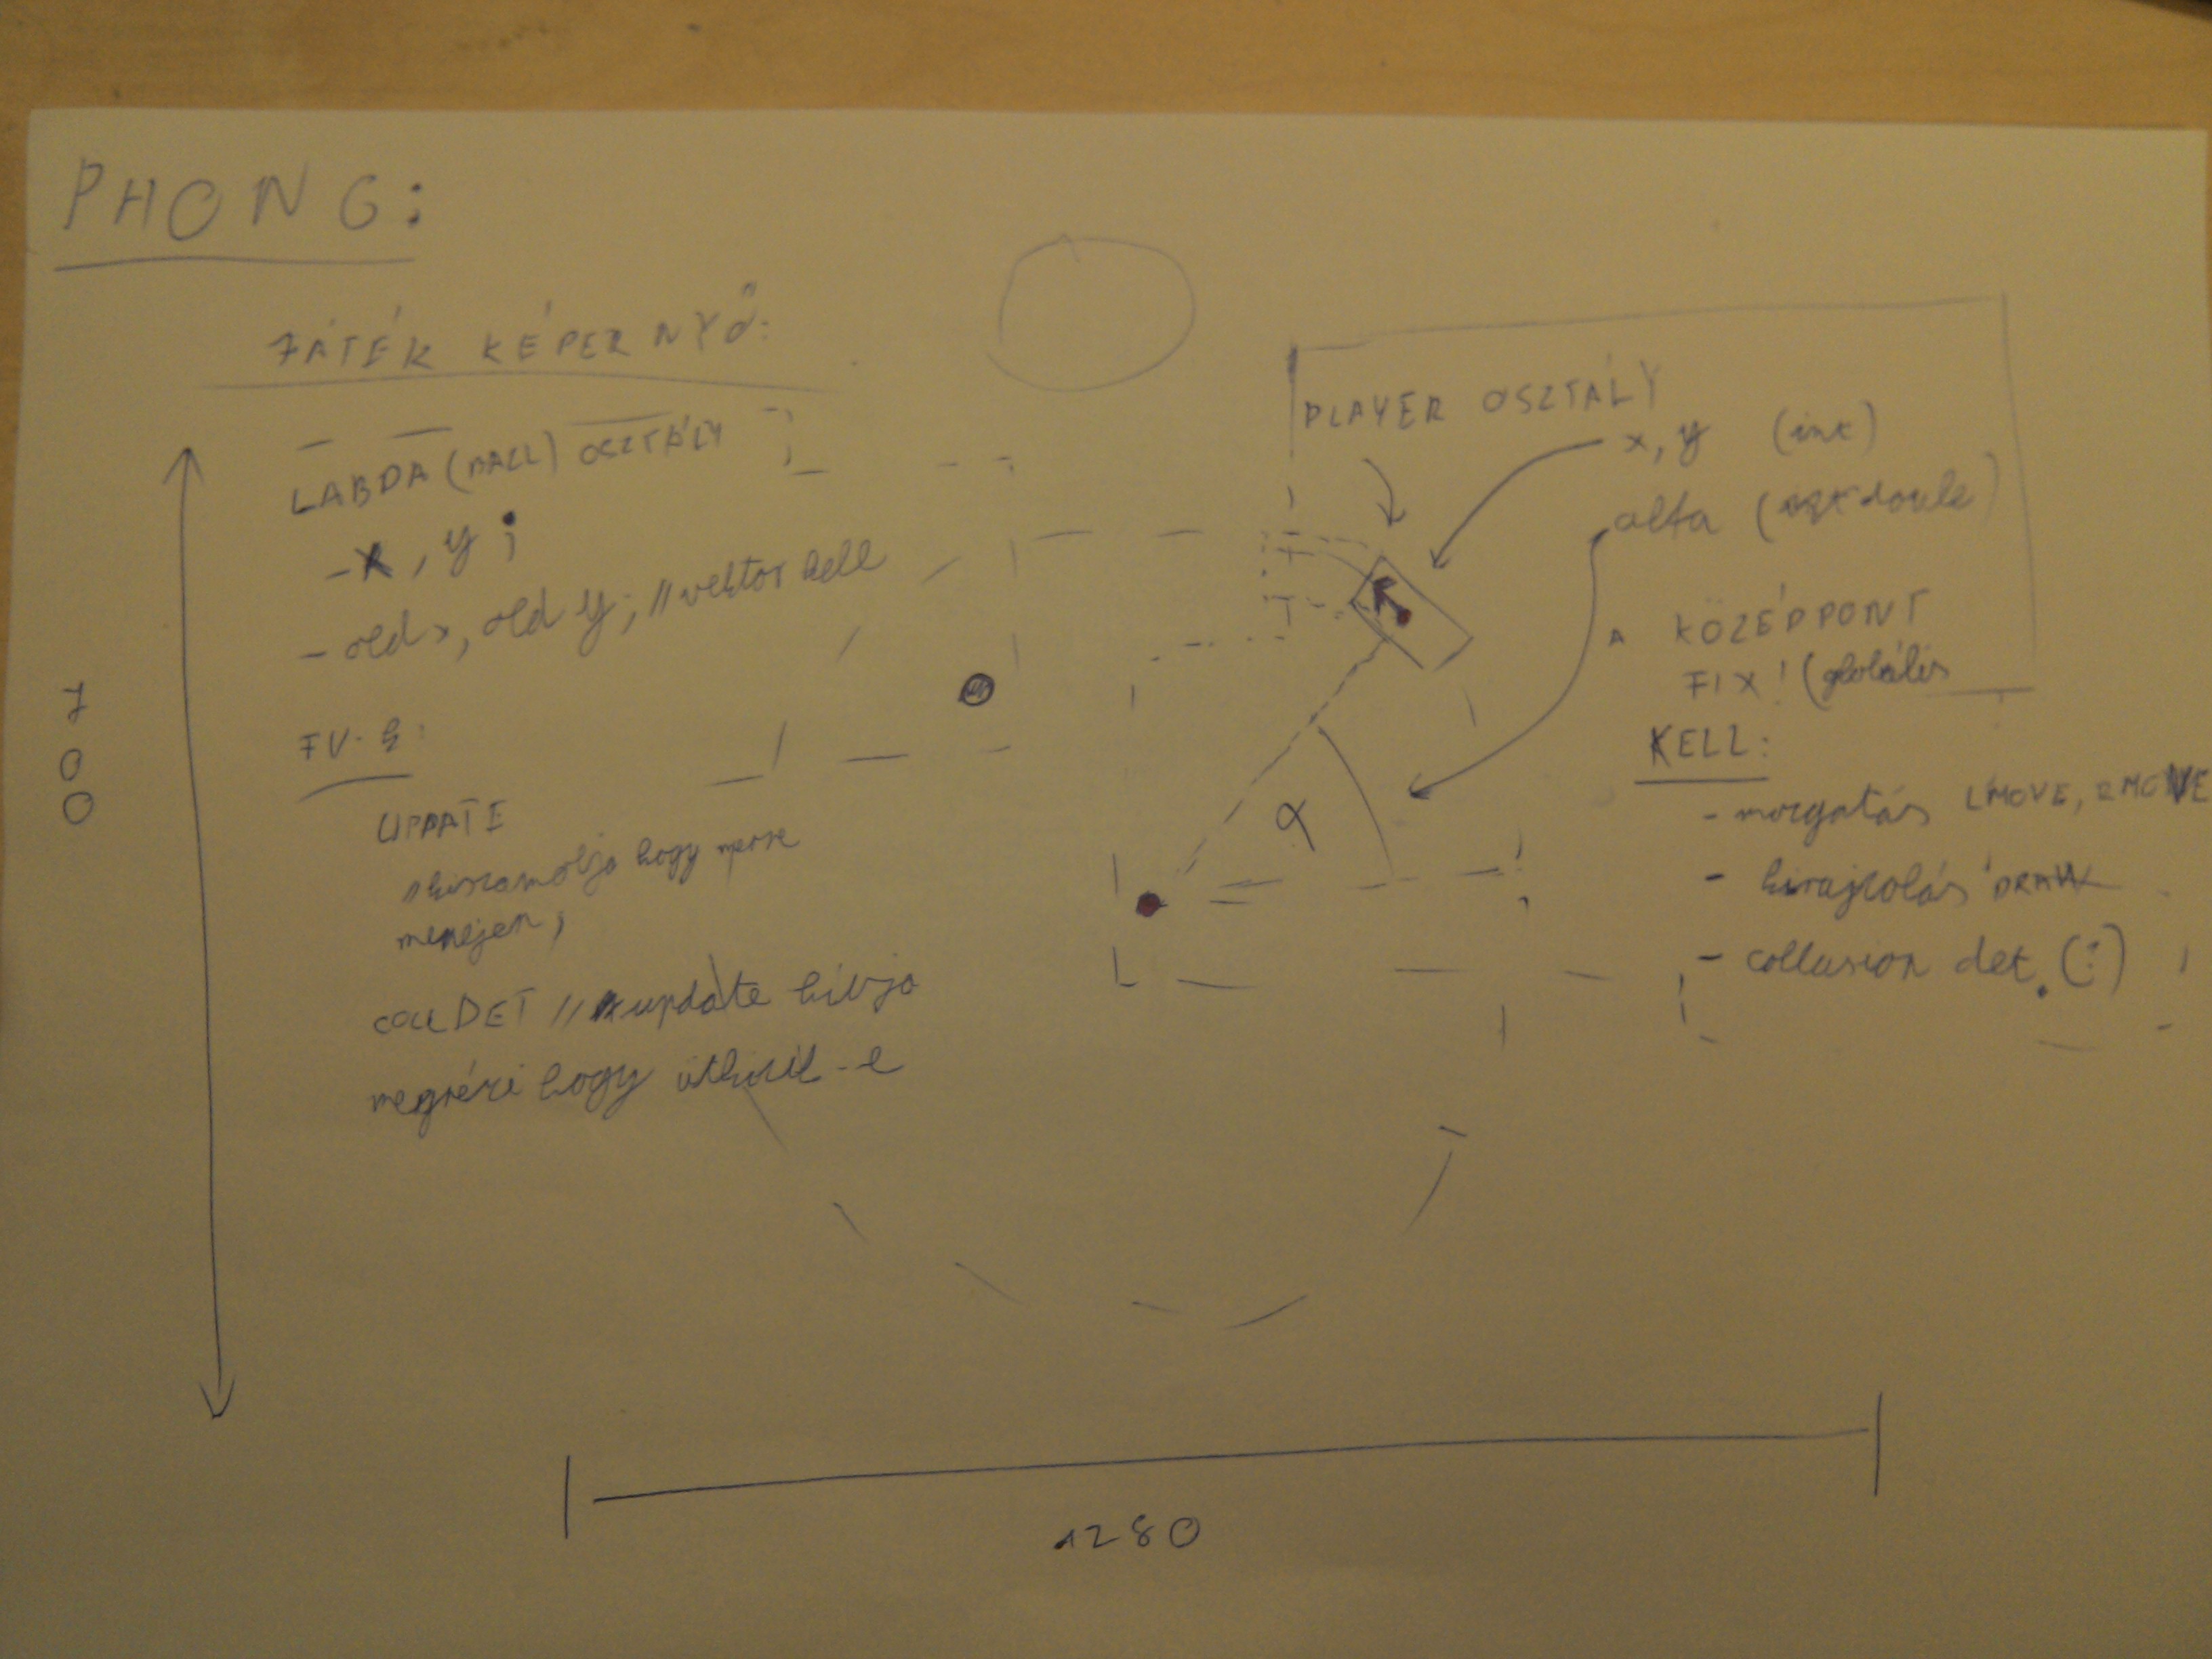 PHONG:
JÁTÉK KÉPERNYŐ:
LABDA (BALL) OSZTÁLY
- x, y;
- old x, old y; // vektor kell
FV-k:
UPDATE
// kiszámolja hogy merre
menejen;
COLLDET // update hívja
megnézi hogy ütközik-e
700
1280
PLAYER OSZTÁLY
x, y (int)
alfa (double)
A KÖZÉPPONT
FIX! (globális
α
KELL:
- mozgatás LMOVE, RMOVE
- kirajzolás DRAW
- collusion det. (?)